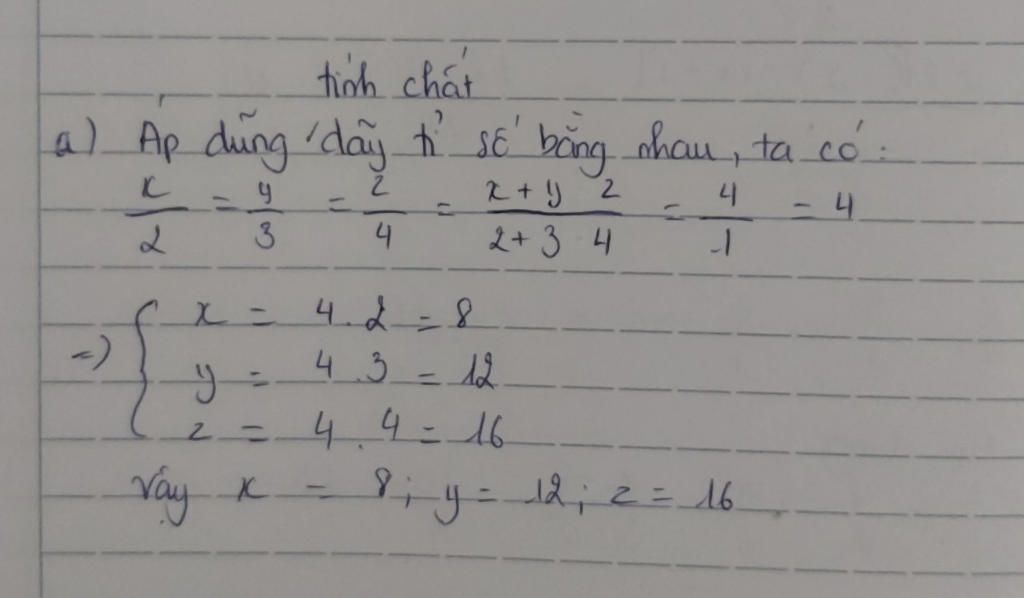 tính chất
a) Áp dũng / dãy tỉ số bằng nhau, ta có:
x/2 = y/3 = z/4 = (x + y z)/(2 + 3 4) = 4/-1 = 4
=> { x = 4.2 = 8
y = 4.3 = 12
z = 4.4 = 16
Vậy x = 8; y = 12; z = 16